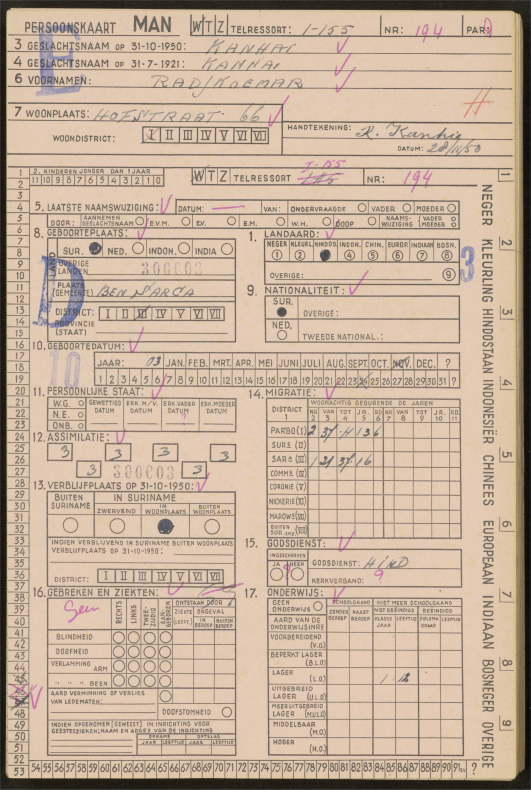 PERSOONSKAART MAN W T Z TELRESSORT: 1-155 NR: 194 PAR:
3 GESLACHTSNAAM OP 31-10-1950: KANHAI
4 GESLACHTSNAAM OP 31-7-1921: KANHAI
6 VOORNAMEN: RADJKOEMAR
7 WOONPLAATS: HOFSTRAAT 66
WOONDISTRICT: I II III IV V VI VII
HANDTEKENING: R. Kanhai
DATUM: 28/11/50
2. KINDEREN JONGER DAN 1 JAAR
11 10 9 8 7 6 5 4 3 2 1 0
W T Z TELRESSORT I-155 NR: 194
5. LAATSTE NAAMSWIJZIGING: DATUM: — VAN: ONDERVRAAGDE VADER MOEDER
DOOR: AANNEMEN GESLACHTSNAAM E.V.M. EV. E.M. W.H. DOOP NAAMSWIJZIGING VADER MOEDER
8. GEBOORTEPLAATS:
SUR. NED. INDON. INDIA
OVERIGE LANDEN 300003
LAND
PLAATS (GEMEENTE)
DISTRICT: I II III IV V VI VII
PROVINCIE (STAAT)
1. LANDAARD:
NEGER KLEURL. HINDOS. INDON. CHIN. EUROP. INDIAAN BOSN.
1 2 4 5 6 7 8
OVERIGE: 9
9. NATIONALITEIT:
SUR. OVERIGE:
NED. TWEEDE NATIONAL.:
3
D
10. GEBOORTEDATUM:
10
JAAR: 03 JAN. FEB. MRT. APR. MEI JUNI JULI AUG. SEPT. OCT. NOV. DEC. ?
1 2 3 4 5 6 7 8 9 10 11 12 13 14 15 16 17 18 19 20 21 22 23 24 25 26 27 28 29 30 31 ?
11. PERSOONLIJKE STAAT:
W.G. GEWETTIGD DATUM ERK. M/V. DATUM ERK. VADER DATUM ERK. MOEDER DATUM
N.E.
ONB.
12. ASSIMILATIE:
3 3 3
3 300003 3
14. MIGRATIE:
DISTRICT WOONACHTIG GEDURENDE DE JAREN
PARBO (I) 2 37
SURA (II)
SARA (III) 1
COMME (IV)
CORONIE (V)
NICKERIE (VI)
MAROWE (VII)
BUITEN SUR.
13. VERBLIJFPLAATS OP 31-10-1950:
BUITEN SURINAME IN SURINAME
ZWERVEND IN WOONPLAATS BUITEN WOONPLAATS
INDIEN VERBLIJVEND IN SURINAME BUITEN WOONPLAATS
VERBLIJFPLAATS OP 31-10-1950:
DISTRICT: I II III IV V VI VII
15. GODSDIENST:
INGESCHREVEN
JA HEEN
GODSDIENST: HIND
KERKVERBAND: 9
16. GEBREKEN EN ZIEKTEN:
Geen
RECHTS LINKS TWEEZIJDIG AANGEBOREN
ONTSTAAN DOOR
ZIEKTE ONGEVAL
LEEFT. IN BEROEP BUITEN BEROEP
BLINDHEID
DOOFHEID
VERLAMMING ARM
" " " BEEN
AARD VERMINKING OF VERLIES VAN LEDEMATEN:
DOOFSTOMHEID
INDIEN OPGENOMEN (GEWEEST) IN INRICHTING VOOR GEESTESZIEKEN, NAAM EN ADRES VAN DE INRICHTING
OPNAME ONTSLAG
JAAR LEEFTIJD JAAR LEEFTIJD
17. ONDERWIJS:
GEEN ONDERWIJS SCHOOLGAAND NIET MEER SCHOOLGAAND
AARD VAN DE ONDERWIJSINR.
NIET BEËINDIGD BEËINDIGD
KLASSE JAAR LEEFTIJD DIPLOMA GRAAD LEEFTIJD
VOORBEREIDEND (V.O.)
BEPERKT LAGER (B.L.O.)
LAGER (L.O.) 1 - 12
UITGEBREID LAGER (U.L.O.)
MEER UITGEBREID LAGER (M.U.L.O.)
MIDDELBAAR (M.O.)
HOGER (H.O.)
NEGER KLEURLING HINDOSTAAN INDONESIËR CHINEES EUROPEAAN INDIAAN BOSNEGER OVERIGE
1 2 3 4 5 6 7 8 9
54 55 56 57 58 59 60 61 62 63 64 65 66 67 68 69 70 71 72 73 74 75 76 77 78 79 80 81 82 83 84 85 86 87 88 89 90 91 ?